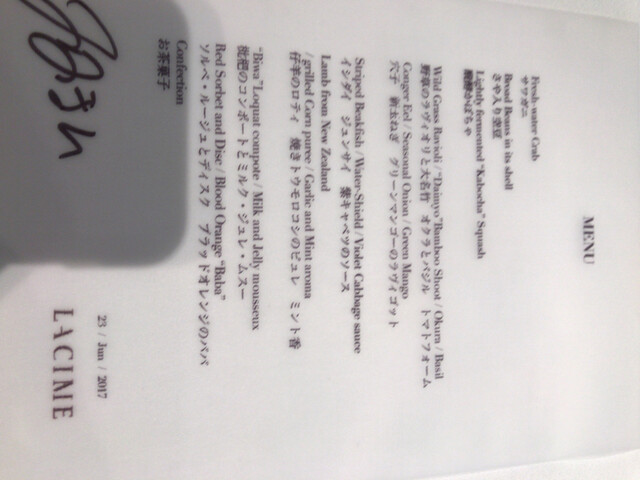 MENU
Fresh-water Crab
サワガニ
Broad Beans in its shell
さや入り空豆
Lightly fermented "Kabocha" Squash
醗酵かぼちゃ
Wild Grass Ravioli / "Daimyo"Bamboo Shoot / Okura / Basil
野草のラヴィオリと大名竹 オクラとバジル トマトフォーム
Conger Eel / Seasonal Onion / Green Mango
穴子 新玉ねぎ グリーンマンゴーのラヴィゴット
Striped Beakfish / Water-Shield / Violet Cabbage sauce
イシダイ ジュンサイ 紫キャベツのソース
Lamb from New Zealand
/ grilled Corn puree / Garlic and Mint aroma
仔羊のロティ 焼きトウモロコシのピュレ ミント香
"Biwa"Loquat compote / Milk and Jelly mousseux
枇杷のコンポートとミルク・ジュレ・ムスー
Red Sorbet and Disc / Blood Orange "Baba"
ソルベ・ルージュとディスク ブラッドオレンジのババ
Confection
お茶菓子
23 / Jun / 2017
LACIME